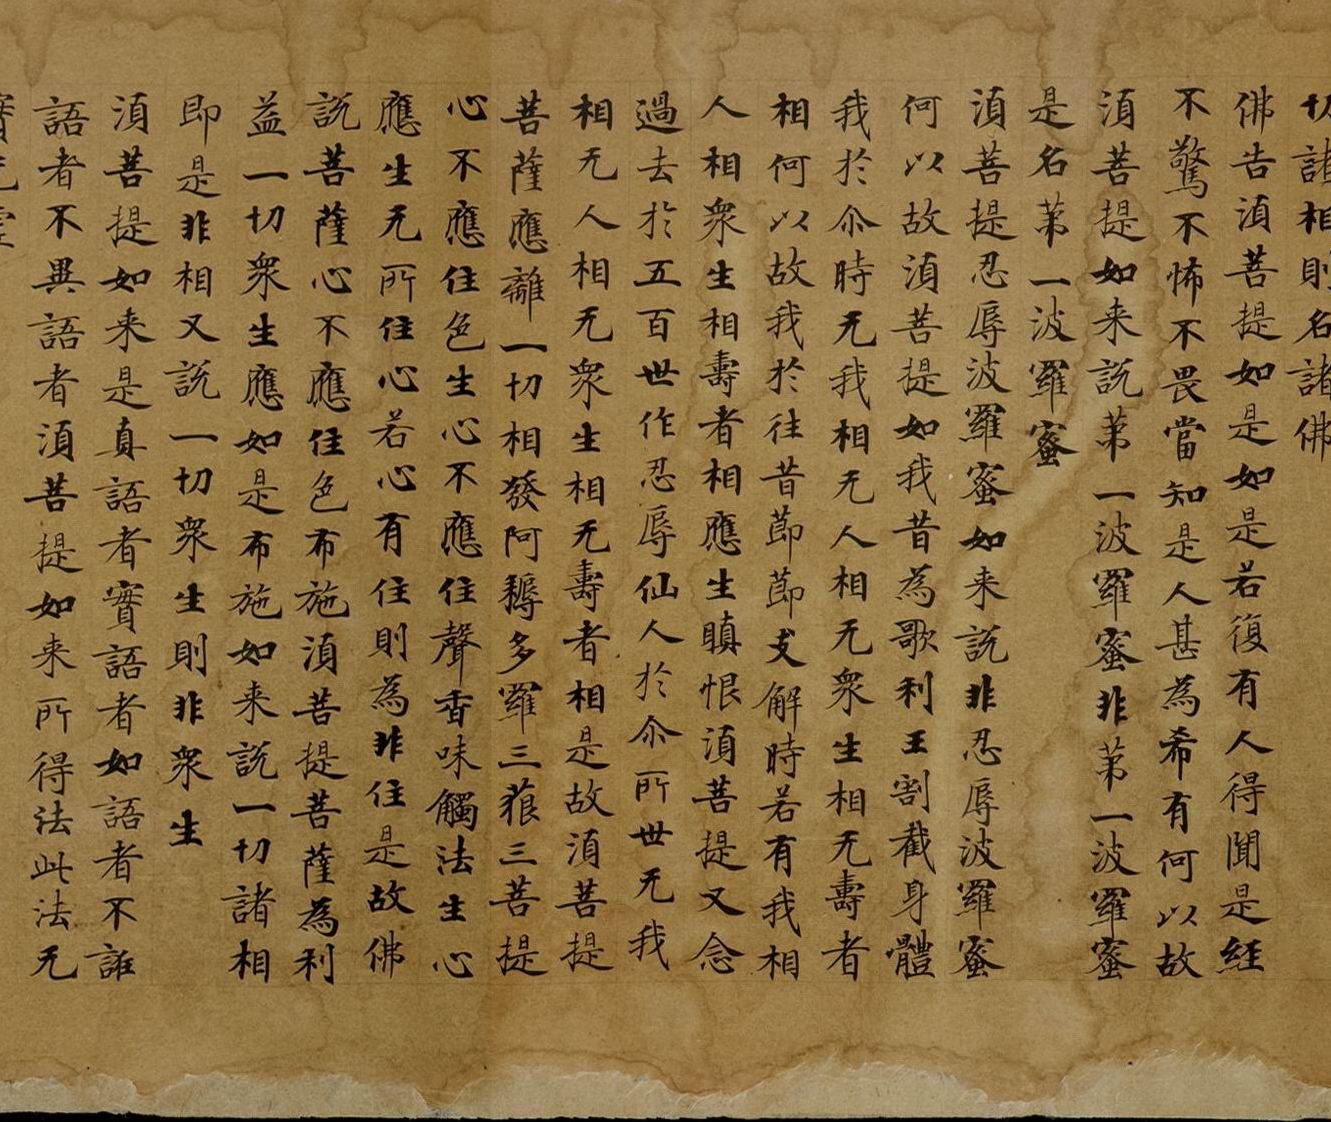 切諸相則名諸佛
佛告湏菩提如是如是若復有人得聞是經
不驚不怖不畏當知是人甚為希有何以故
湏菩提如来說苐一波羅蜜非苐一波羅蜜
是名苐一波羅蜜
湏菩提忍辱波羅蜜如来說非忍辱波羅蜜
何以故湏菩提如我昔為歌利王割截身體
我於尒時无我相无人相无衆生相无壽者
相何以故我於往昔莭莭支解時若有我相
人相衆生相壽者相應生瞋恨湏菩提又念
過去於五百世作忍辱仙人於尒所世无我
相无人相无衆生相无壽者相是故湏菩提
菩薩應離一切相發阿耨多羅三藐三菩提
心不應住色生心不應住聲香味觸法生心
應生无所住心若心有住則為非住是故佛
說菩薩心不應住色布施湏菩提菩薩為利
益一切衆生應如是布施如来說一切諸相
即是非相又說一切衆生則非衆生
湏菩提如来是真語者實語者如語者不誑
語者不異語者湏菩提如来所得法此法无
實无虛